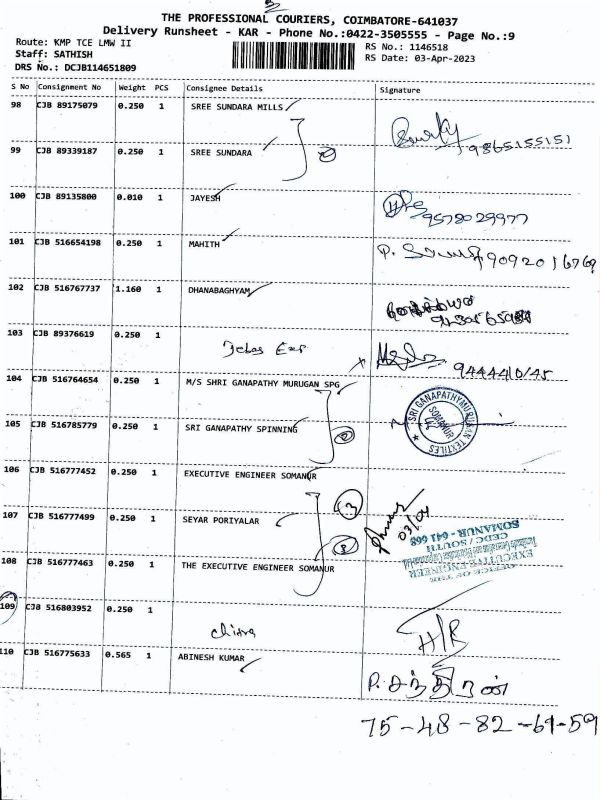 THE PROFESSIONAL COURIERS, COIMBATORE-641037
Delivery Runsheet - KAR - Phone No.:0422-3505555 - Page No.:9
Route: KMP TCE LMW II
Staff: SATHISH
DRS No.: DCJB114651809
RS No.: 1146518
RS Date: 03-Apr-2023
S No Consignment No Weight PCS Consignee Details Signature
98 CJB 89175079 0.250 1 SREE SUNDARA MILLS
9865155151
99 CJB 89339187 0.250 1 SREE SUNDARA
2
100 CJB 89135800 0.010 1 JAYESH
9578029977
101 CJB 516654198 0.250 1 MAHITH
9092016769
102 CJB 516767737 1.160 1 DHANABAGHYAM
103 CJB 89376619 0.250 1
104 CJB 516764654 0.250 1 M/S SHRI GANAPATHY MURUGAN SPG
SRI GANAPATHYMURUGAN TEXTILES
SOMANUR
105 CJB 516785779 0.250 1 SRI GANAPATHY SPINNING
2
106 CJB 516777452 0.250 1 EXECUTIVE ENGINEER SOMANUR
3
107 CJB 516777499 0.250 1 SEYAR PORIYALAR
03/04
108 CJB 516777463 0.250 1 THE EXECUTIVE ENGINEER SOMANUR
OFFICE OF THE
EXECUTIVE ENGINEER
CEDC / SOUTH
SOMANUR - 641 668
109 CJB 516803952 0.250 1
chitra
H/R
110 CJB 516775633 0.565 1 ABINESH KUMAR
P. சந்திரன்
75-48-82-69-59